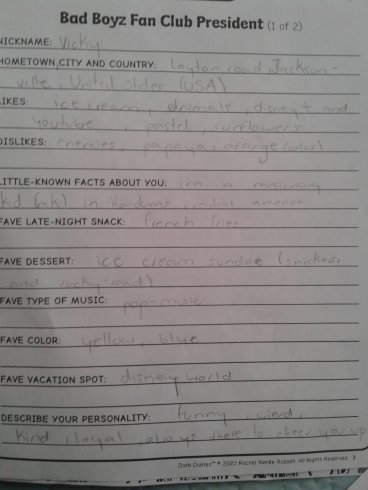 Bad Boyz Fan Club President (1 of 2)
NICKNAME: Vicky
HOMETOWN, CITY AND COUNTRY: Layton road, Jackson-
ville United States (USA)
LIKES: ice cream, animals, disney+ and
youtube, pastel, sunflowers
DISLIKES: enemies, papaya, orange (color)
LITTLE-KNOWN FACTS ABOUT YOU: im a missionary
kid (mk) in Honduras, central america
FAVE LATE-NIGHT SNACK: french fries
FAVE DESSERT: ice cream sundae (snickers
and rocky-road)
FAVE TYPE OF MUSIC: pop-music
FAVE COLOR: yellow, blue
FAVE VACATION SPOT: disney world
DESCRIBE YOUR PERSONALITY: funny, wierd,
kind, loyal always there to cheer you up
Dork Diaries™ © 2020 Rachel Renée Russell. All Rights Reserved. 3